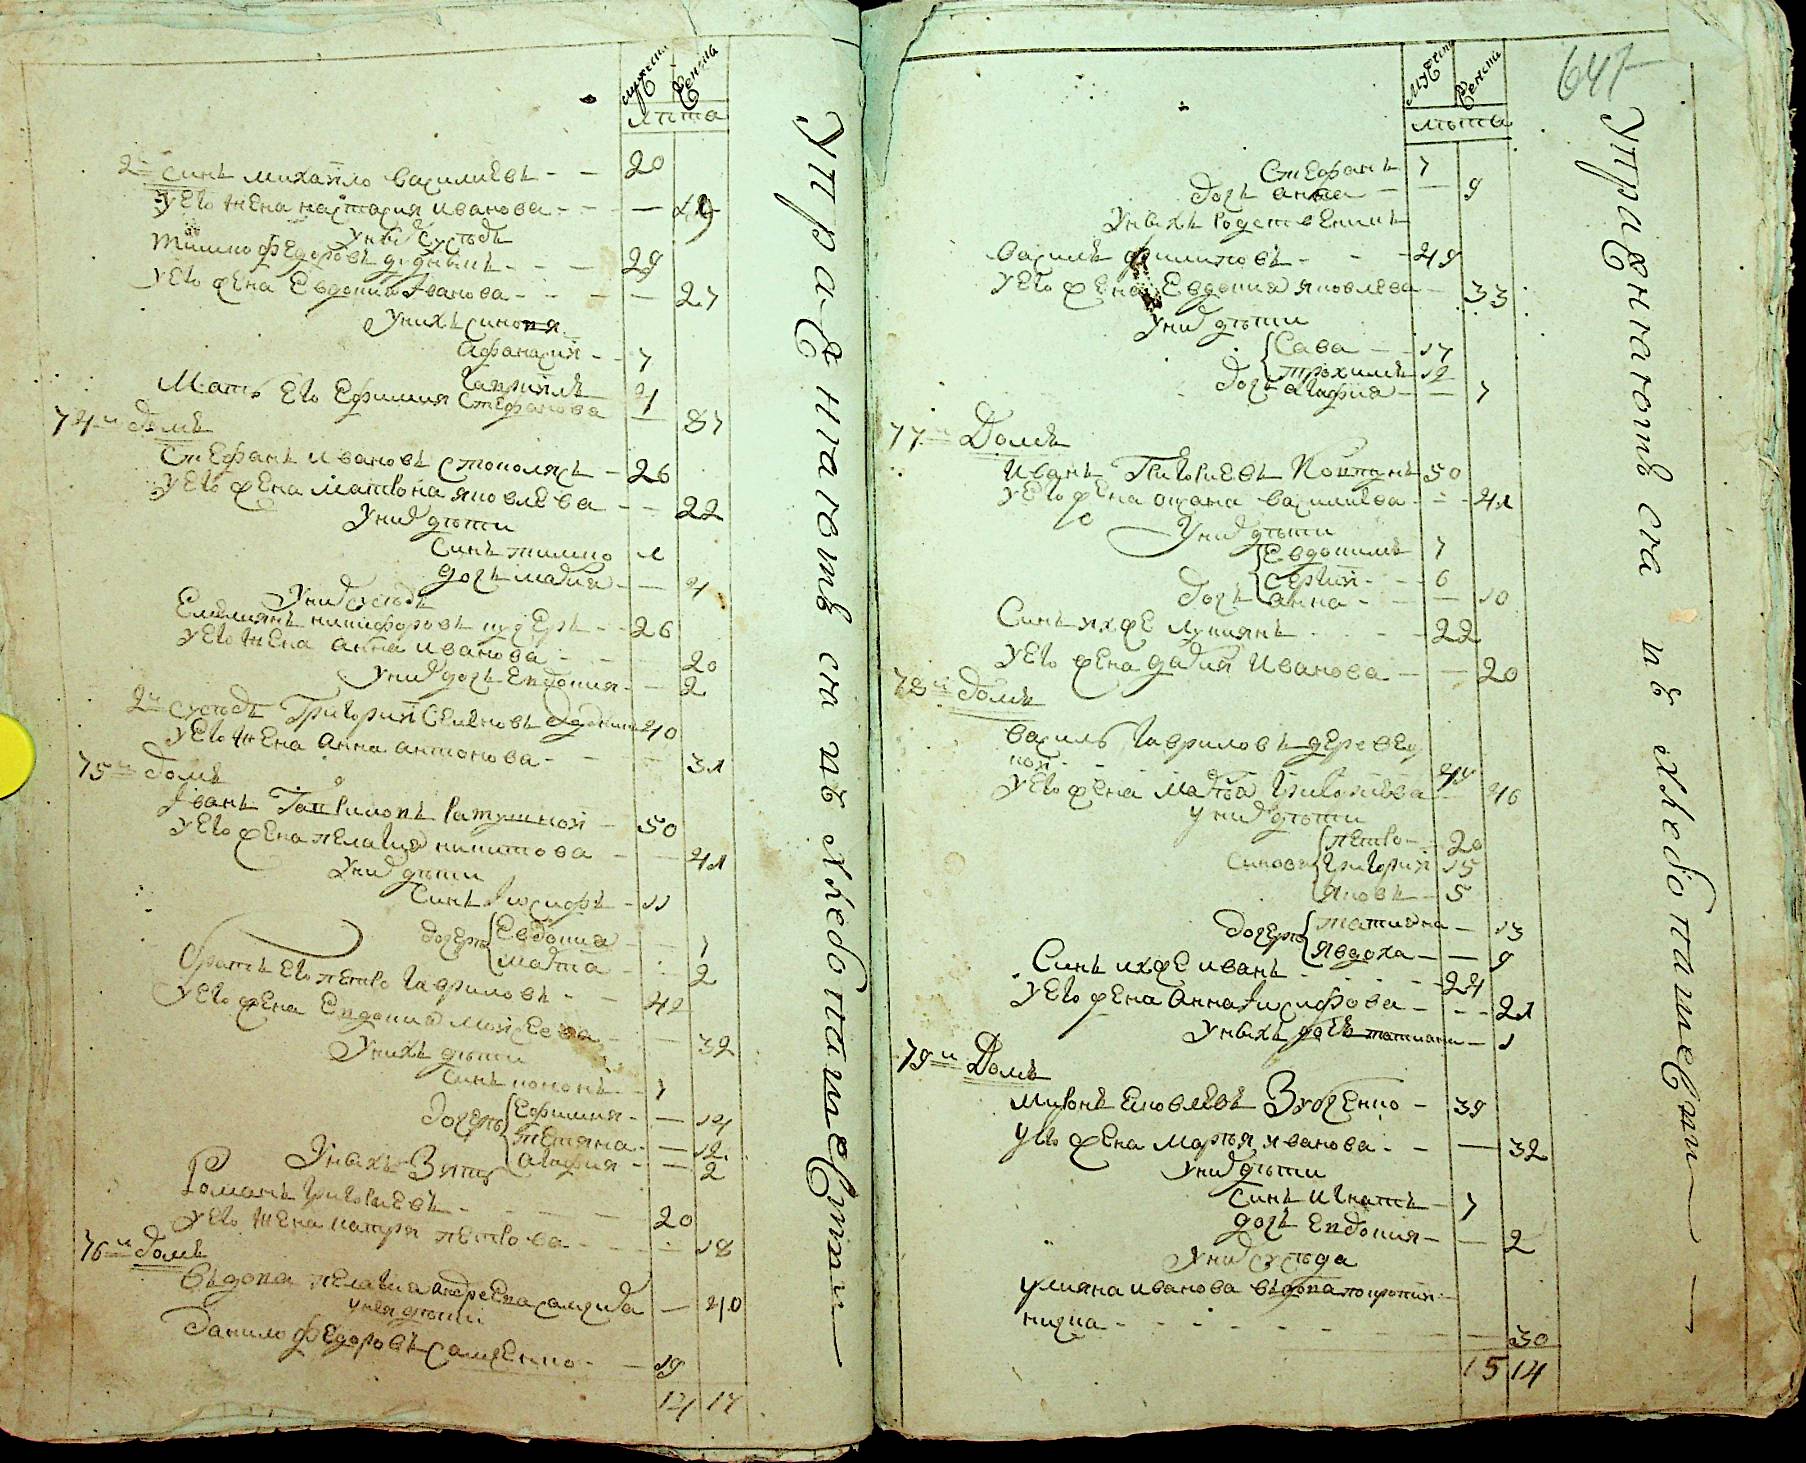 мужеска женска
лѣта
2й синъ михайло василиевъ - - 20
у его жена настасия иванова - - - 19
у них сусѣдъ
тишко федоровъ - - - 29
у его жена Евдокия Іванова - - - - 27
у нихъ синовя
афанасий - - 7
гаврiилъ 4
Мать Его Ефимия Стефанова — 87
74й домъ
Стефанъ ивановъ - 26
у его жена матрона яковлева - - 22
у них дѣти
синъ тишко 1
дочь мария - - 4
у них сусѣдъ
Емелиянъ никифоровъ - - 26
у его жена анна иванова - - - 20
у них дочь Евдокия - - 2
2й сусѣдъ Григорий Семеновъ 40
у его жена анна антонова - - - 31
75й домъ
Іванъ Гавриловъ Ратушной - 50
у его жена пелагия никитова - - 41
у них дѣти
синъ Іосифъ - 11
дочери Евдокия - - 7
марта - - 2
Братъ его петро гавриловъ - - 42
у его жена Евдокия моисеева - - 32
у нихъ дѣти
синъ кононъ - - 7
дочери Ефимия - — 14
тетяна - — 12
агафия - — 2
у нихъ Зять
Романъ григориевъ - - - 20
у его жена петрова - - - 18
76й домъ
вѣдова пелагия андреева — 40
у нея дѣти
данило федоровъ - — 19
14 17
Упражняются въ хлебопашестве —
647
мужеска женска
лѣта
Стефанъ 7
дочь анна - — 9
у нихъ родственникъ
василь филиповъ - - - 49
у его жена Евдокия яковлева - 33
у них дѣти
Сава - - 17
трохимъ - 12
дочь агафия - — 7
77й Домъ
иванъ Григориевъ 50
у его жена василиева - - - 41
у них дѣти
Евдокимъ 7
сергий - - - 6
дочь анна - - — 10
Синъ ихже лукиянъ - - - 22
у его жена дария иванова - — 20
78й домъ
василь гавриловъ
у его жена марфа григориева 46
у них дѣти
петро - - 20
синовя григорий 15
яковъ - 5
дочери татияна - 13
явдоха - — 9
Синъ ихже иванъ - - - - 24
у его жена анна Іосифова - - - - 21
у нихъ дочь татияна - 1
79й Домъ
миронъ яковлевъ - 39
у его жена марья иванова - - — 32
у них дѣти
синъ игнатъ - 7
дочь Евдокия - — 2
у них сусѣда
улияна иванова вѣдова
— 30
15 14
Упражняются въ хлебопашестве — —